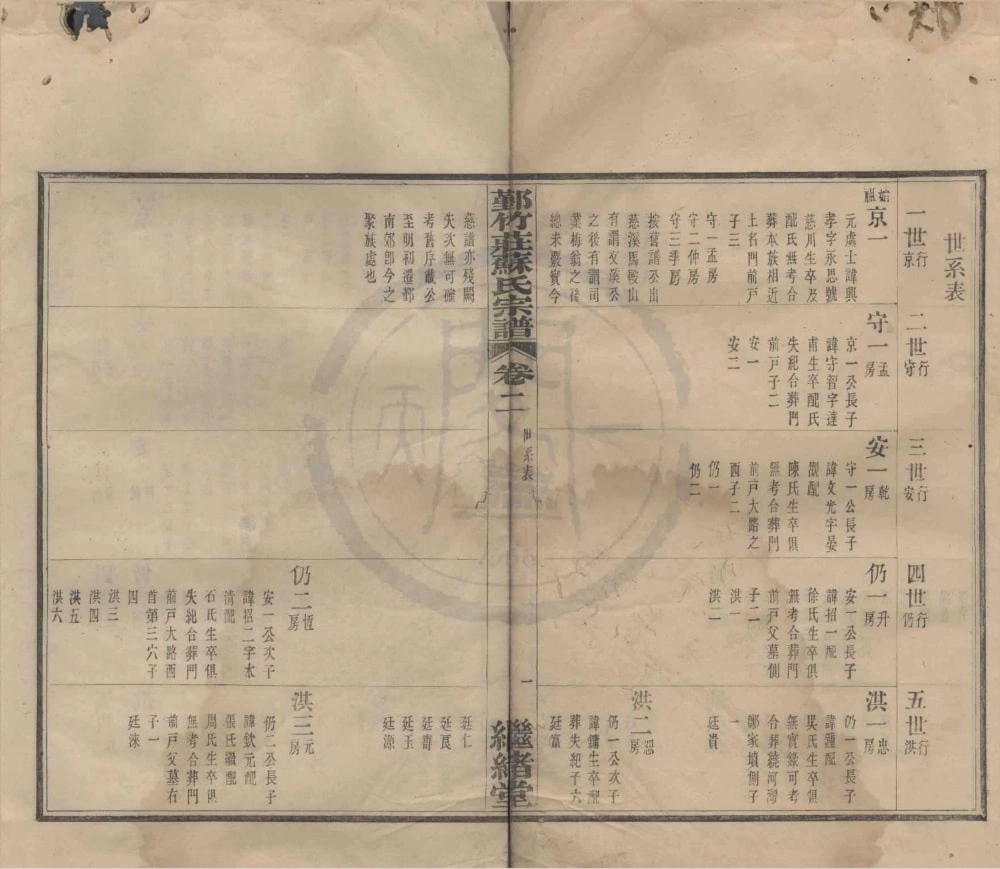 世系表
一世京行
二世守行
三世安行
四世仍行
五世洪行
始祖京一
元處士諱興
孝字永思號
慈川生卒及
配氏無考合
葬本族相近
土名門前戶
子三
守一孟房
守二仲房
守三季房
按舊譜公出
慈溪馬鞍山
有謂攻漢公
之後有謂司
業梅翁之後
總未覈實今
慈譜亦殘闕
失次無可確
考舊序載公
至明初遷鄞
南郊即今之
聚族處也
守一孟房
京一公長子
諱守智字達
甫生卒配氏
失紀合葬門
前戶子二
安一
安二
安一乾房
守一公長子
諱文光字晏
配
陳氏生卒俱
無考合葬門
前戶大路之
西子二
仍一
仍二
仍一升房
安一公長子
諱招一配
徐氏生卒俱
無考合葬門
前戶父墓側
子二
洪一
洪二
仍二恆房
安一公次子
諱招二字本
清配
石氏生卒俱
失紀合葬門
前戶大路西
首第三穴子
四
洪三
洪四
洪五
洪六
洪一忠房
仍一公長子
諱鍾配
吳氏生卒俱
無實錄可考
合葬繞河灣
鄭家墳側子
一
廷貴
洪二恕房
仍一公次子
諱鏞生卒配
葬失紀子六
廷富
廷仁
廷良
廷壽
廷玉
廷源
洪三元房
仍二公長子
諱欽元配
張氏繼配
周氏生卒俱
無考合葬門
前戶父墓右
子一
廷洙
鄞竹莊蘇氏宗譜
卷二
世系表
一
繼緒堂